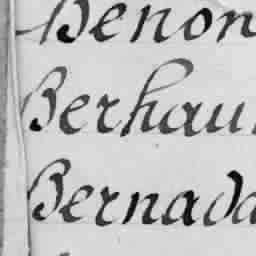 Benon
Berhau
Bernada